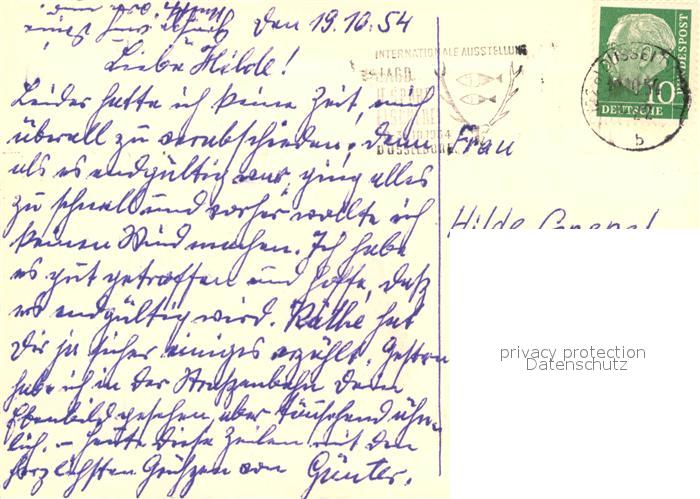 den 19.10.54
Liebe Hilde!
Leider hatte ich keine Zeit, mich
überall zu verabschieden, denn
als es endgültig war, ging alles
zu schnell und vorher wollte ich
keinen Wind machen. Ich habe
es gut getroffen und hoffe, daß
es endgültig wird. Käthe hat
Dir ja sicher einiges erzählt. Gestern
habe ich in der Straßenbahn Dein
Ebenbild gesehen, aber täuschend ähn-
lich. – Heute diese Zeilen mit den
herzlichsten Grüßen von Günter.
INTERNATIONALE AUSSTELLUNG
JAGD
1954
DÜSSELDORF
b
DEUTSCHE
BUNDESPOST
10
Frau
Hilde
privacy protection
Datenschutz